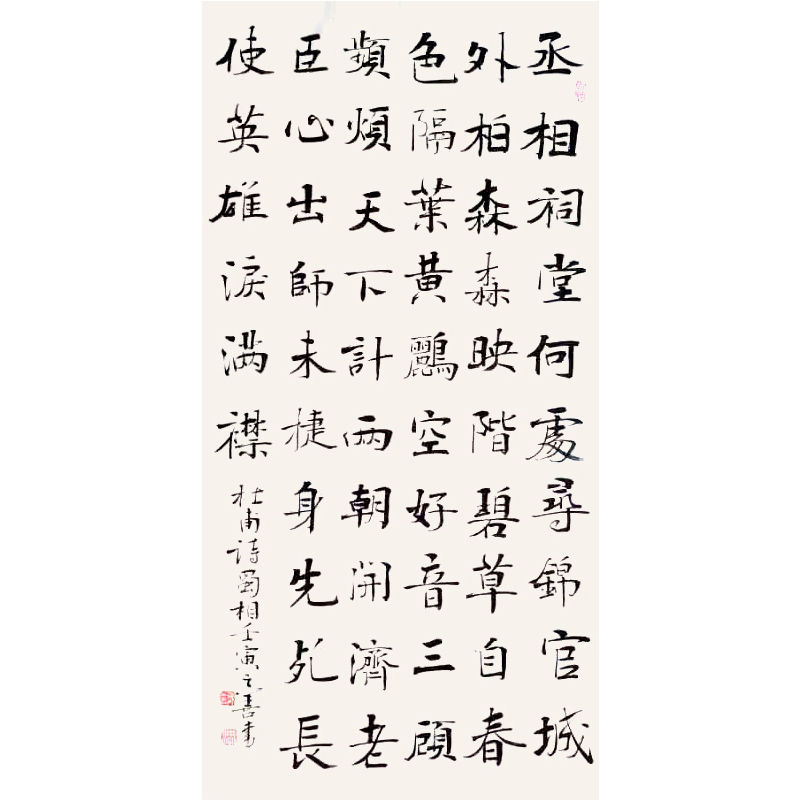 丞相祠堂何處尋錦官城
外柏森森映階碧草自春
色隔葉黃鸝空好音三顧
蘋煩天下計兩朝開濟老
臣心出師未捷身先死長
使英雄淚满襟
杜甫诗蜀相壬寅之喜书